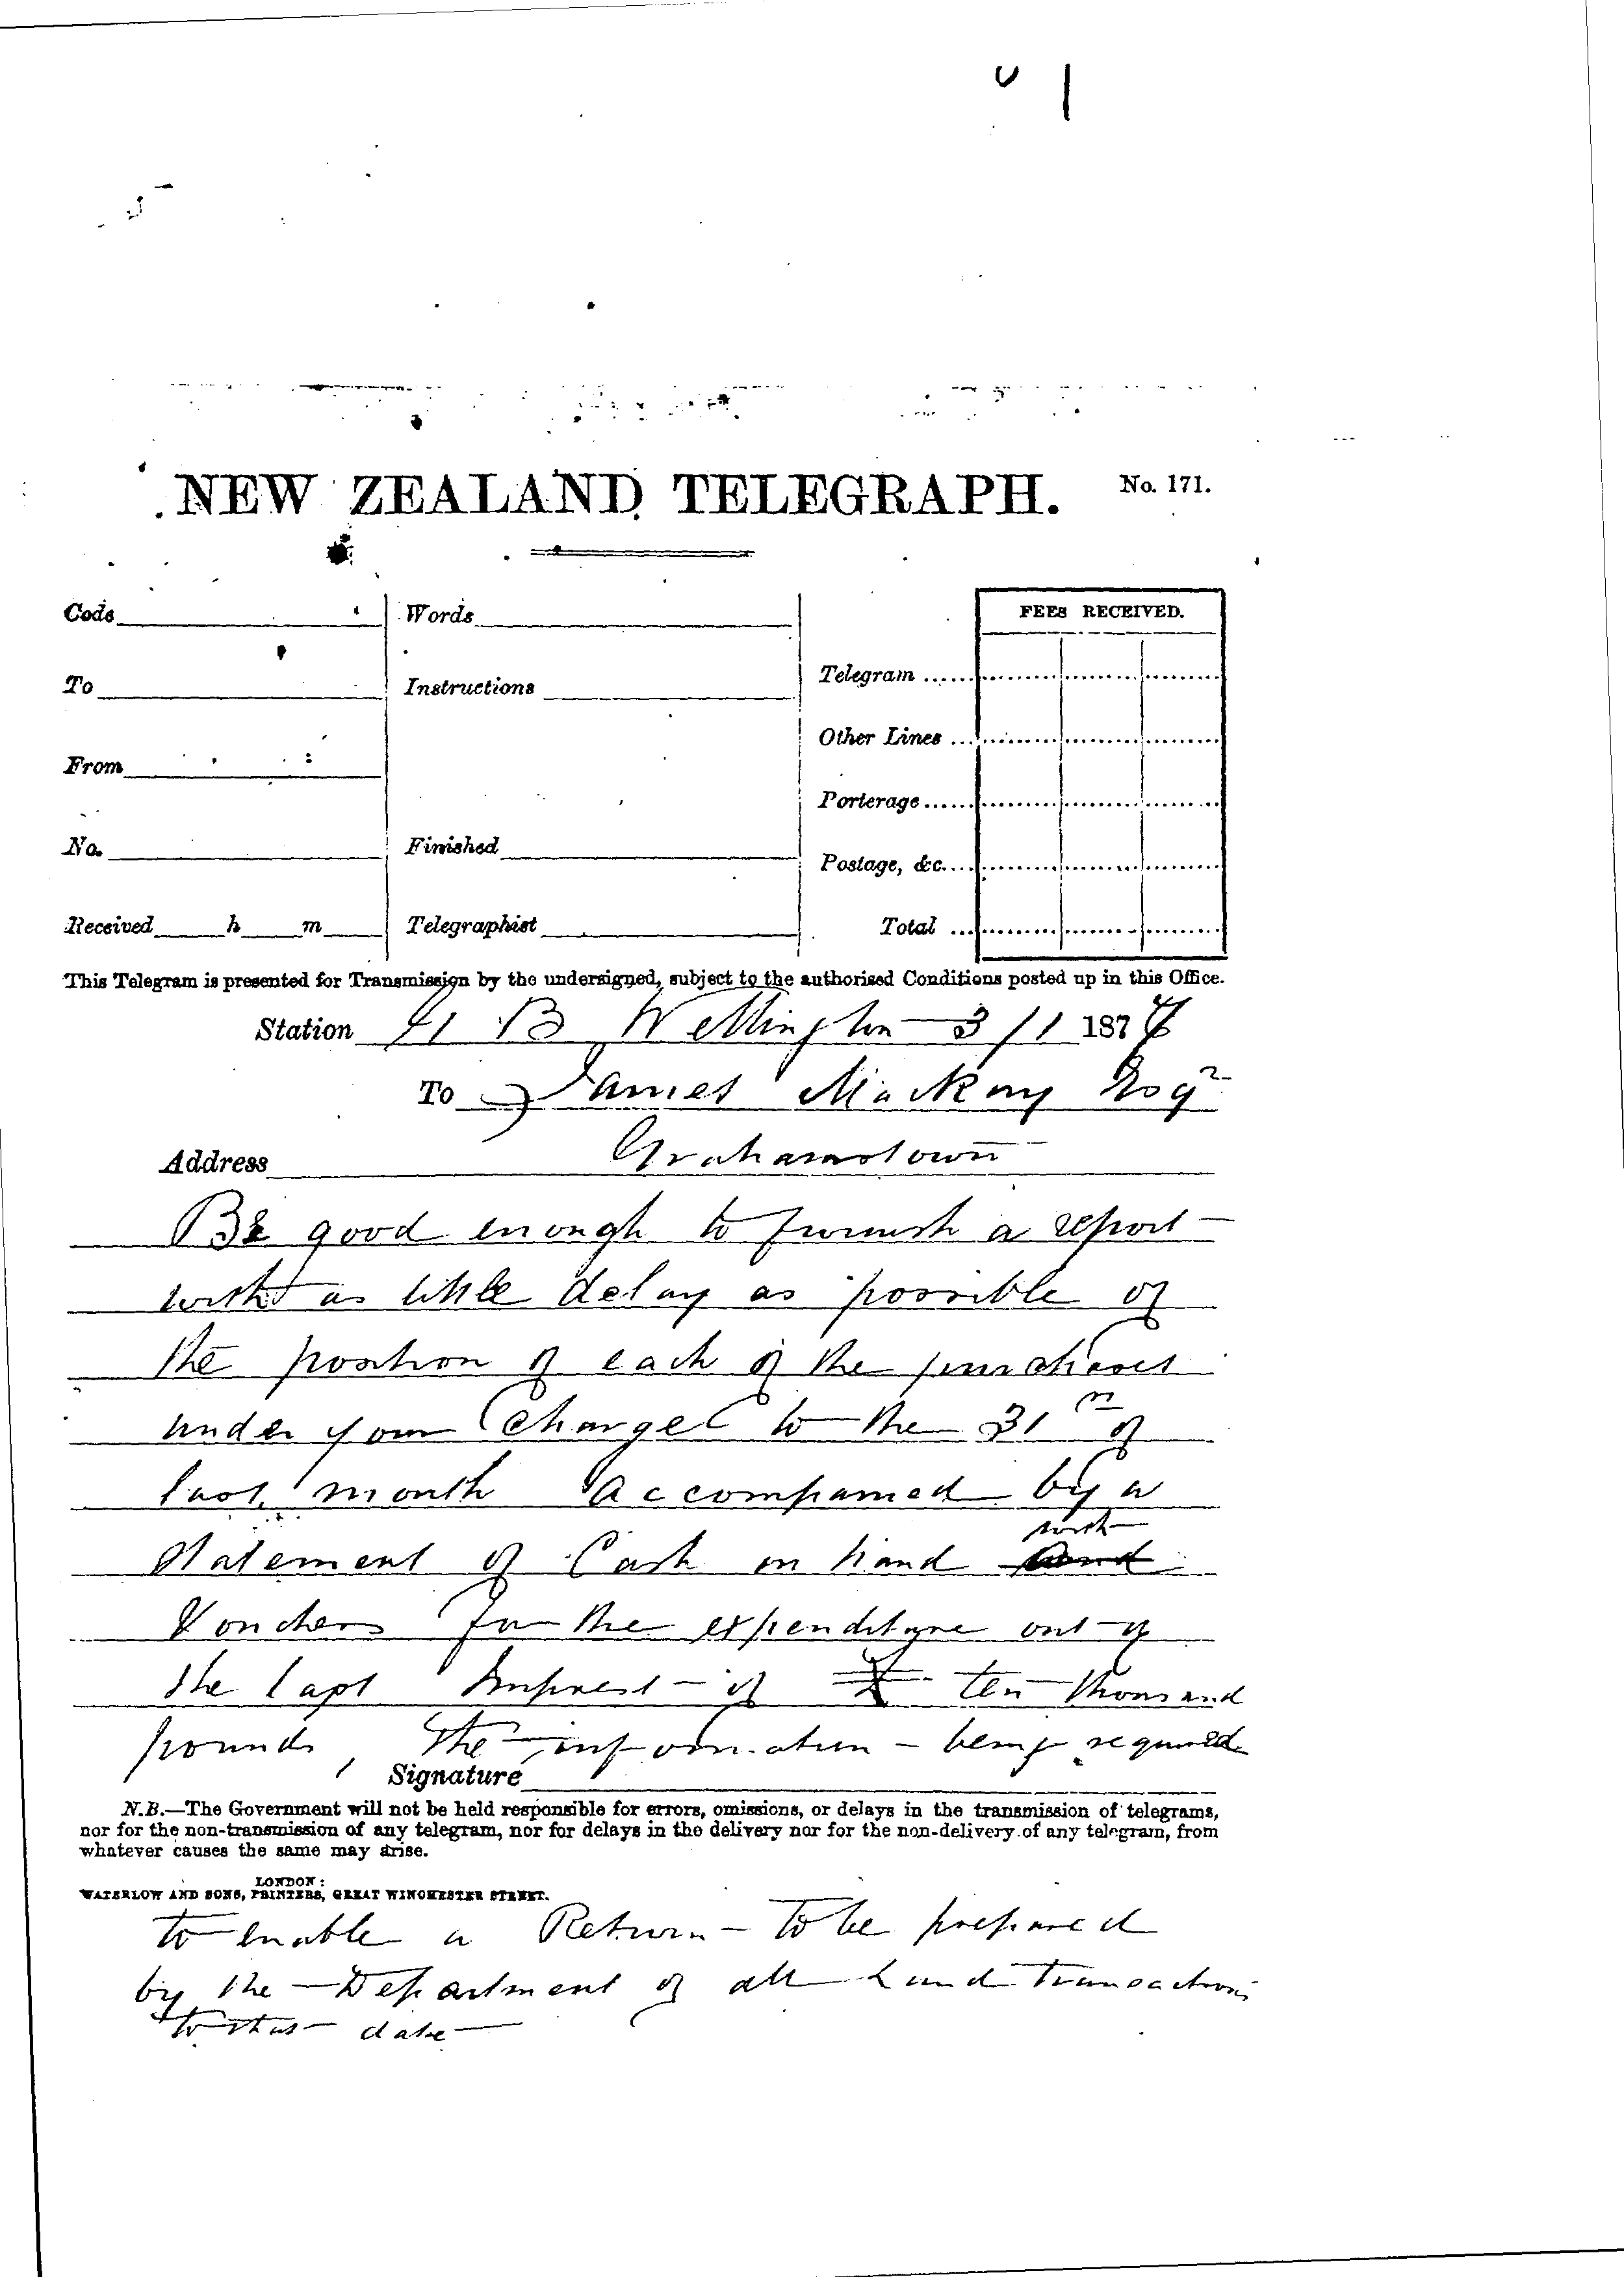 NEW ZEALAND TELEGRAPH. No. 171.
FEES RECEIVED.
Code Words
To Instructions Telegram ......
Other Lines ...
From
Porterage ......
No. Finished
Postage, &c....
Received h m Telegraphist Total ...
This Telegram is presented for Transmission by the undersigned, subject to the authorised Conditions posted up in this Office.
Station Wellington 3/1 187
To James Mackay Esqr
Address Grahamstown
Be good enough to furnish a report
with as little delay as possible of
the position of each of the purchases
under your charge to the 31st of
last month accompanied by a
with
Statement of Cash in hand and
Vouchers for the expenditure out of
the last Imprest of £ ten thousand
pounds, The information being required
Signature
N.B.—The Government will not be held responsible for errors, omissions, or delays in the transmission of telegrams,
nor for the non-transmission of any telegram, nor for delays in the delivery nor for the non-delivery of any telegram, from
whatever causes the same may arise.
LONDON:
WATERLOW AND SONS, PRINTERS, GREAT WINCHESTER STREET.
to enable a Return to be prepared
by the Department of all Land Transactions
to this date